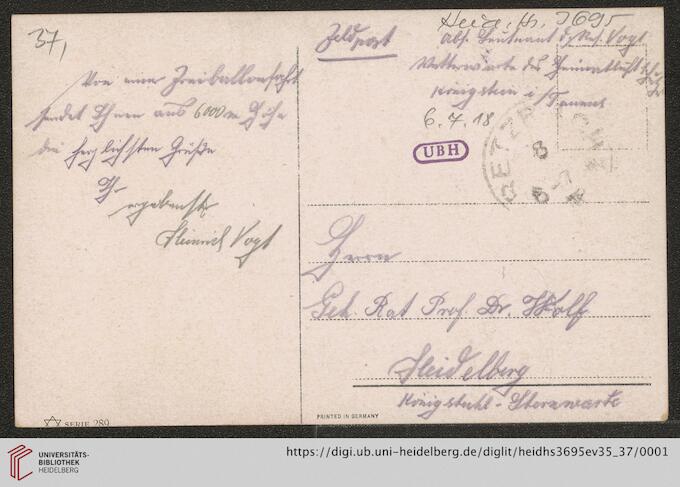 37,
Heid. Hs. 3695
Feldpost
Abs. Leutnant d. Res. Vogt
Wetterwarte des Heimatluft
Königstein i/Taunus
6. 7. 18
UBH
Von einer Freiballonfahrt
sendet Ihnen aus 6000 m Höhe
die herzlichsten Grüße
Ihr
ergebenster
Heinrich Vogt
Herrn
Geh. Rat Prof. Dr. Wolf
Heidelberg
Königstuhl-Sternwarte
SERIE 289
PRINTED IN GERMANY
UNIVERSITÄTS-
BIBLIOTHEK
HEIDELBERG
https://digi.ub.uni-heidelberg.de/diglit/heidhs3695ev35_37/0001